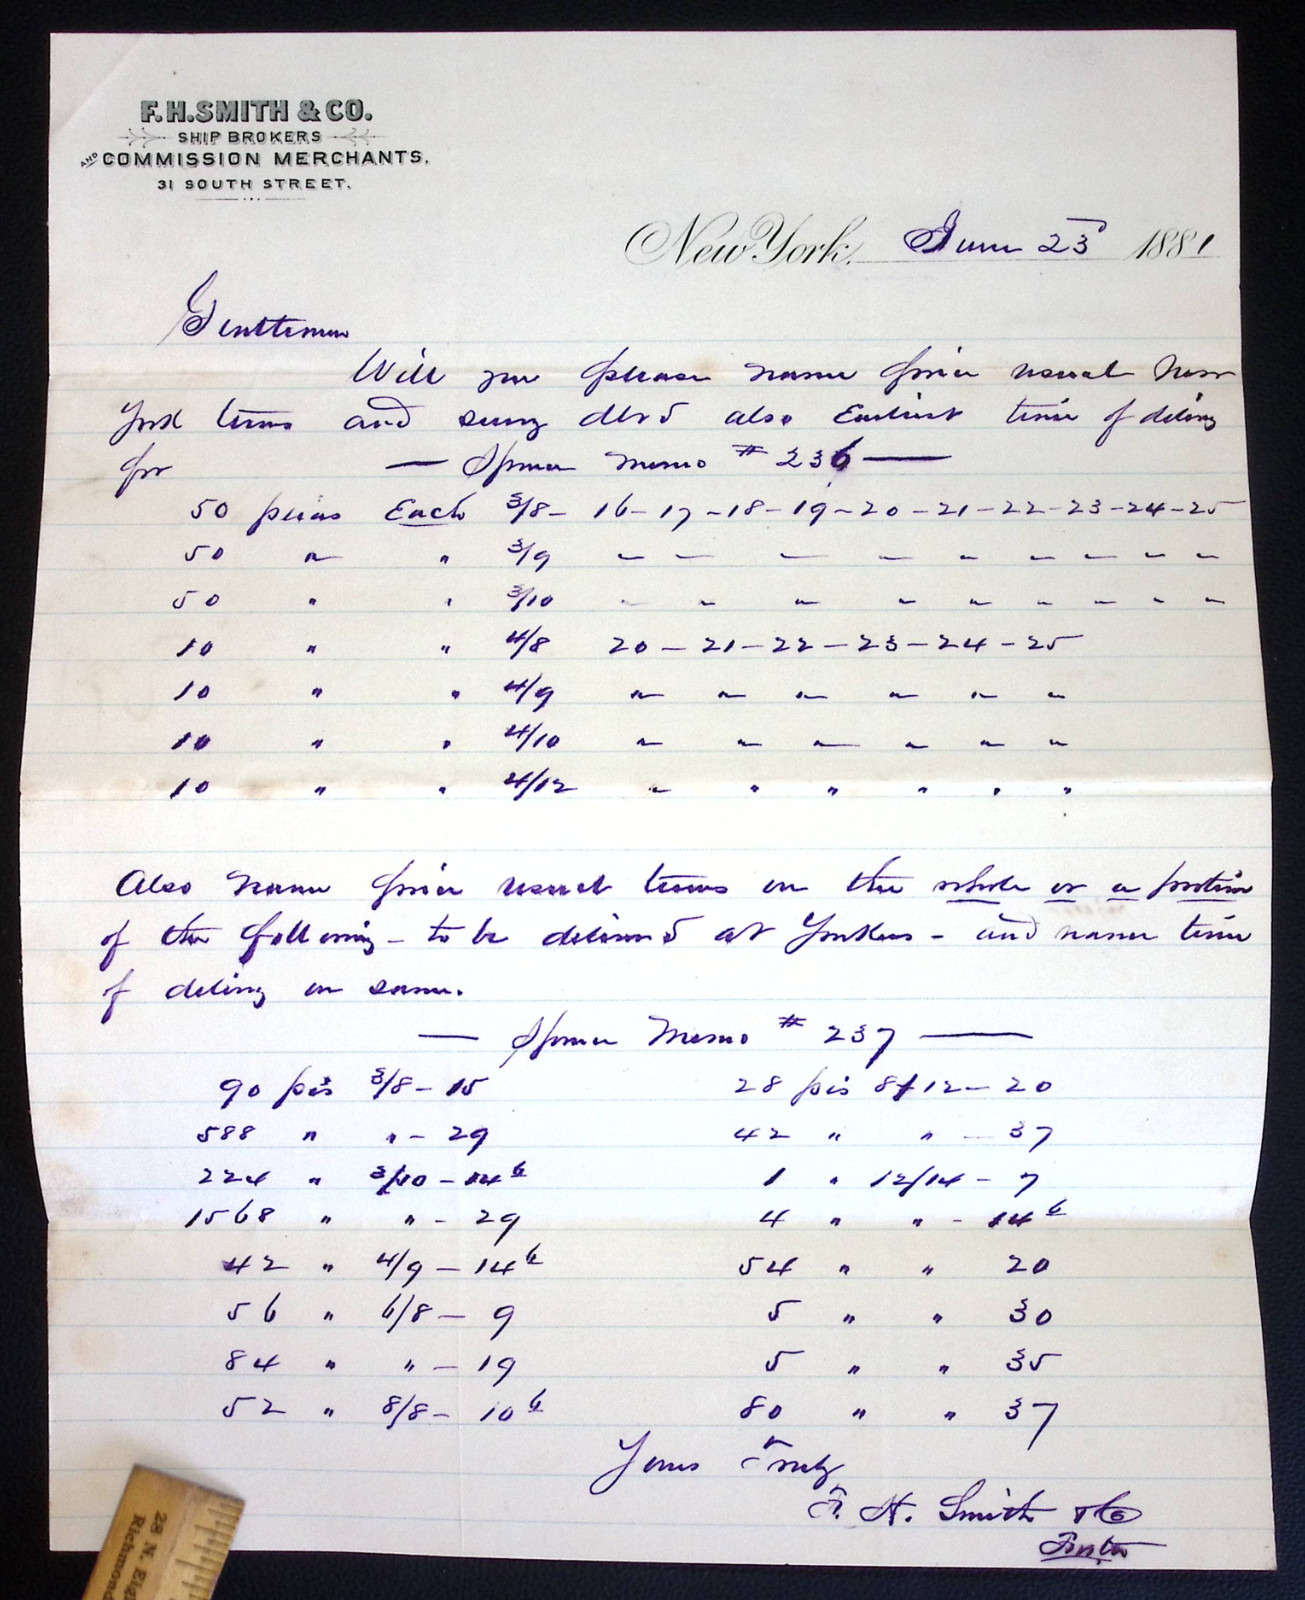 F. H. SMITH & CO.
SHIP BROKERS
AND COMMISSION MERCHANTS.
31 SOUTH STREET.
New York, June 23 1881
Gentlemen
Will you please name price usual New
York terms and delivd also Earliest time of delivy
for — Spruce Memo # 236 —
50 pieces Each 3/8 - 16 - 17 - 18 - 19 - 20 - 21 - 22 - 23 - 24 - 25
50 " " 3/9 " " " " " " " " "
50 " " 3/10 " " " " " " " " "
10 " " 4/8 20 - 21 - 22 - 23 - 24 - 25
10 " " 4/9 " " " " " "
10 " " 4/10 " " " " " "
10 " " 4/12 " " " " " "
Also name price usual terms on the whole or a portion
of the following - to be delivered at Yonkers - and name time
of delivy on same.
— Spruce Memo # 237 —
90 pcs 3/8 - 15 28 pcs 8/12 - 20
588 " " - 29 42 " " - 37
224 " 3/10 - 14 6 1 " 12/14 - 7
1568 " " - 29 4 " " - 14 6
42 " 4/9 - 14 6 54 " " 20
56 " 6/8 - 9 5 " " 30
84 " " - 19 5 " " 35
52 " 8/8 - 10 6 80 " " 37
Yours Truly
F. H. Smith & Co
28 N. Elg
Richmond